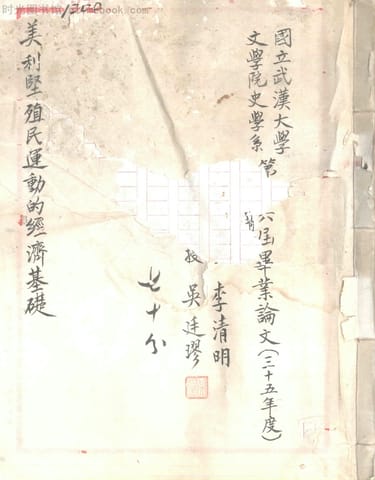 國立武漢大學
文學院史學系第
屆畢業論文(三十五年度)
李清明
吳廷璆
七十分
美利堅殖民運動的經濟基礎
时光图书馆
1300